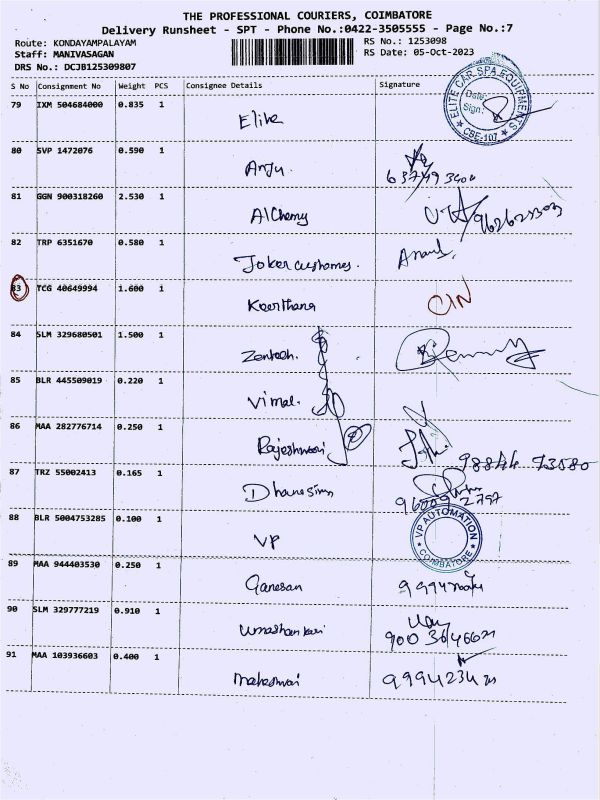 THE PROFESSIONAL COURIERS, COIMBATORE
Delivery Runsheet - SPT - Phone No.:0422-3505555 - Page No.:7
Route: KONDAYAMPALAYAM
RS No.: 1253098
Staff: MANIVASAGAN
RS Date: 05-Oct-2023
DRS No.: DCJB125309807
S No Consignment No Weight PCS Consignee Details Signature
ELITE CAR SPA EQUIPMENTS
Date:
Sign:
CBE-107
79 IXM 504684000 0.835 1 Elite
80 SVP 1472076 0.590 1 Anju
81 GGN 900318260 2.530 1 Alchemy
82 TRP 6351670 0.580 1 Joker Anand
83 TCG 40649994 1.600 1 Keerthana CIN
84 SLM 329680501 1.500 1
85 BLR 445509019 0.220 1 Vimal.
86 MAA 282776714 0.250 1 Rajeshwari 73580
87 TRZ 55002413 0.165 1
88 BLR 5004753285 0.100 1 VP
VP AUTOMATION
COIMBATORE
89 MAA 944403530 0.250 1 Ganesan
90 SLM 329777219 0.910 1
91 MAA 103936603 0.400 1